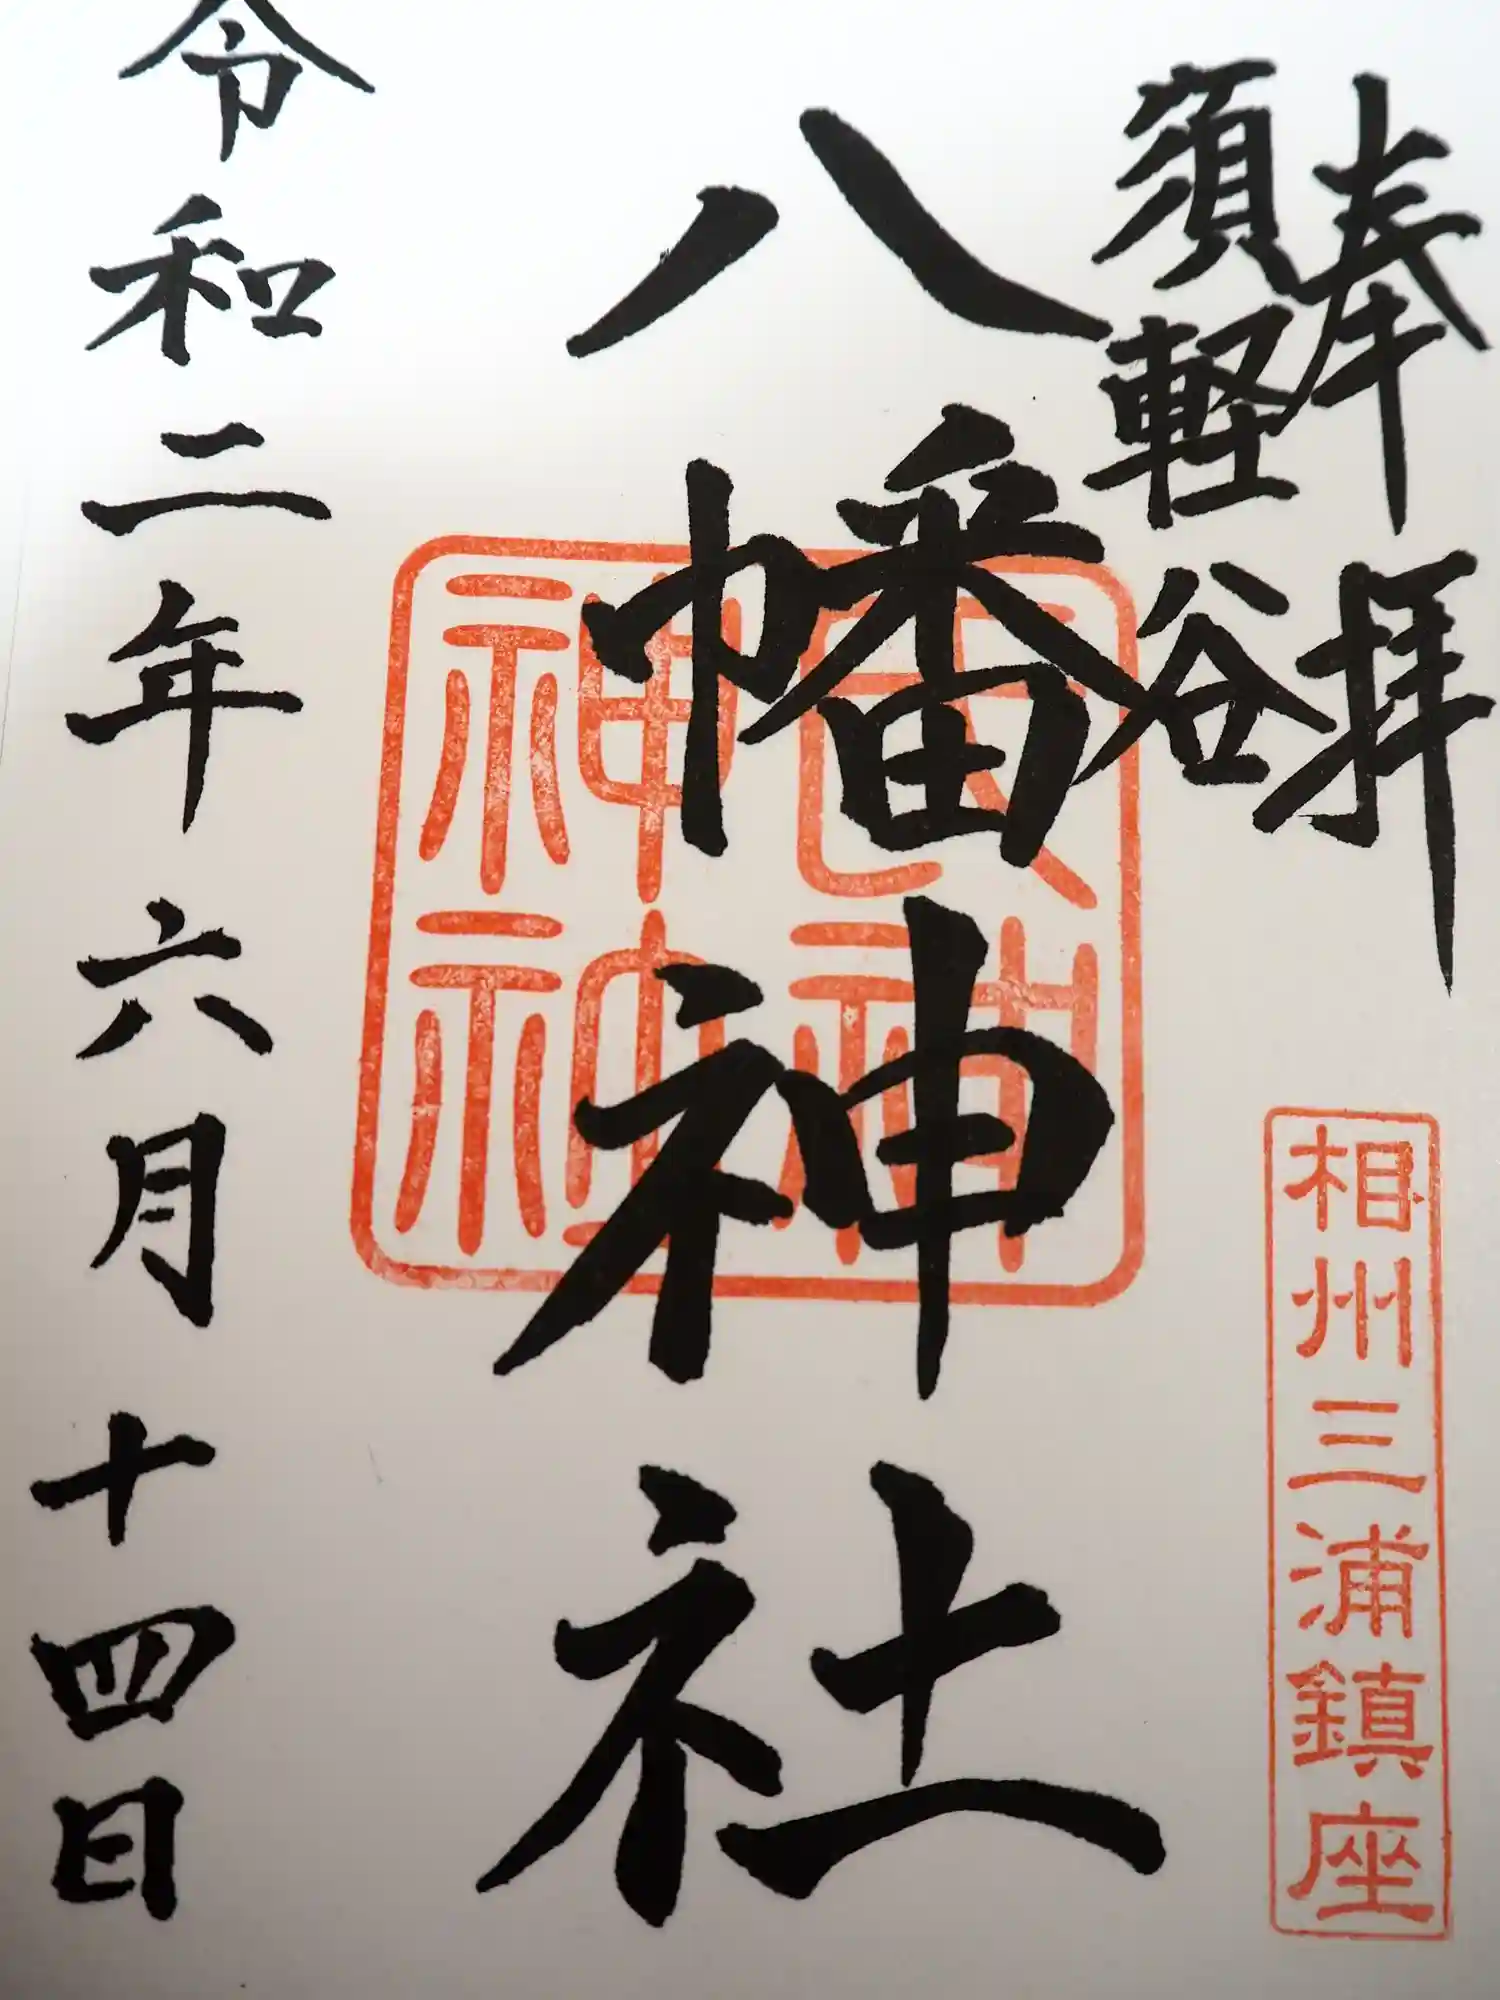 奉拝
相州三浦鎮座
須軽谷
八幡神社
令和二年六月十四日